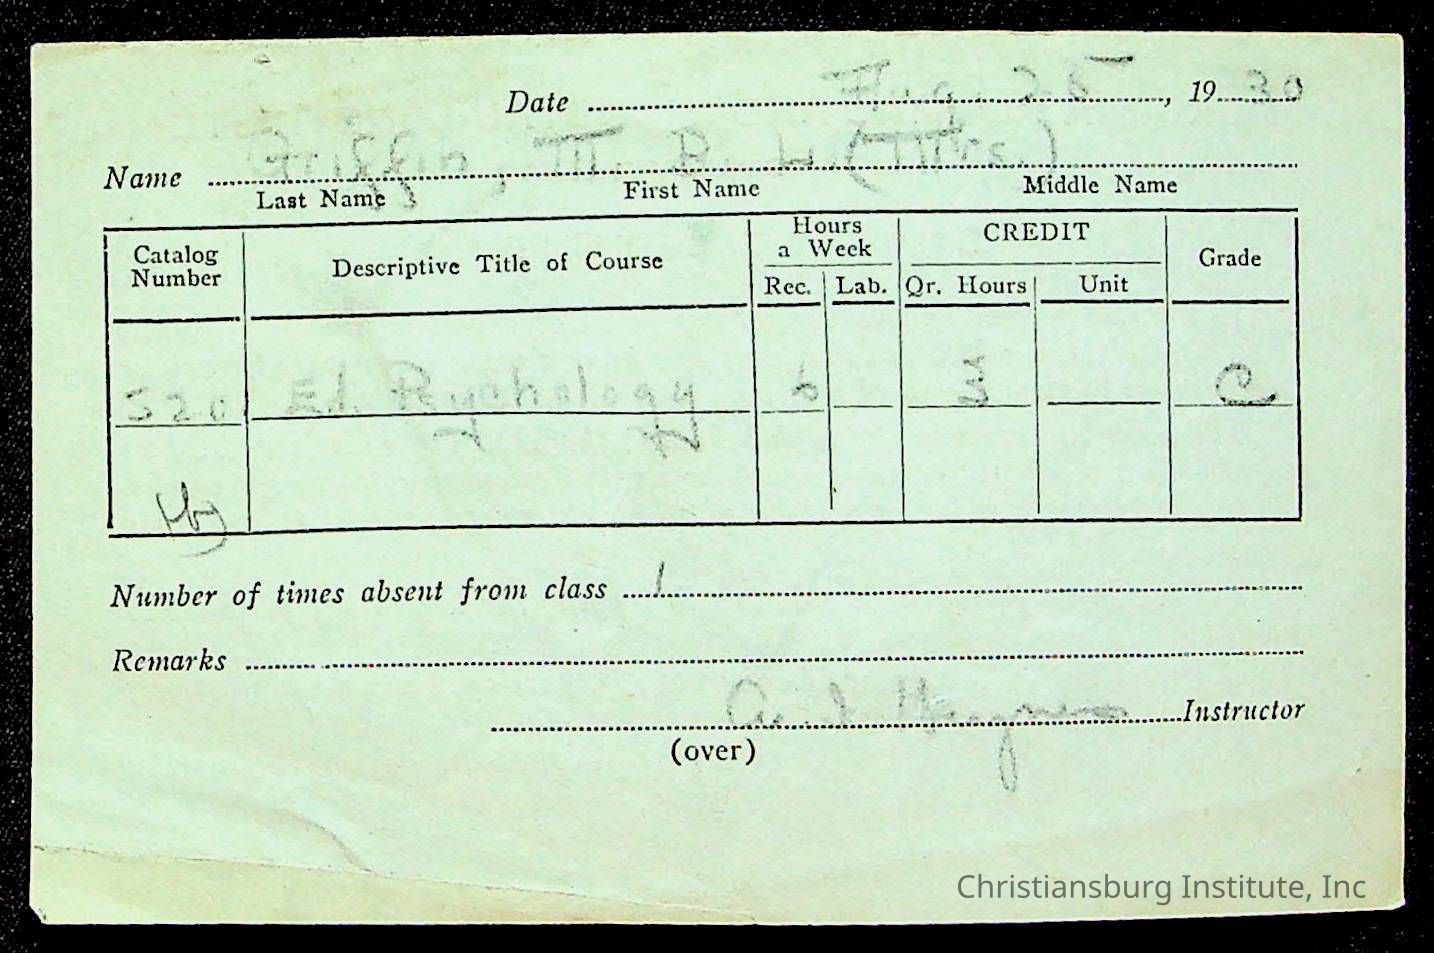 Date Aug. 25, 1930
Name Griffin, M. A. H. (Mrs.)
Last Name First Name Middle Name
Catalog Number Descriptive Title of Course Hours a Week Rec. Lab. CREDIT Qr. Hours Unit Grade
320 Ed. Psychology 6 3 C
Number of times absent from class 1
Remarks
Instructor
(over)
Christiansburg Institute, Inc